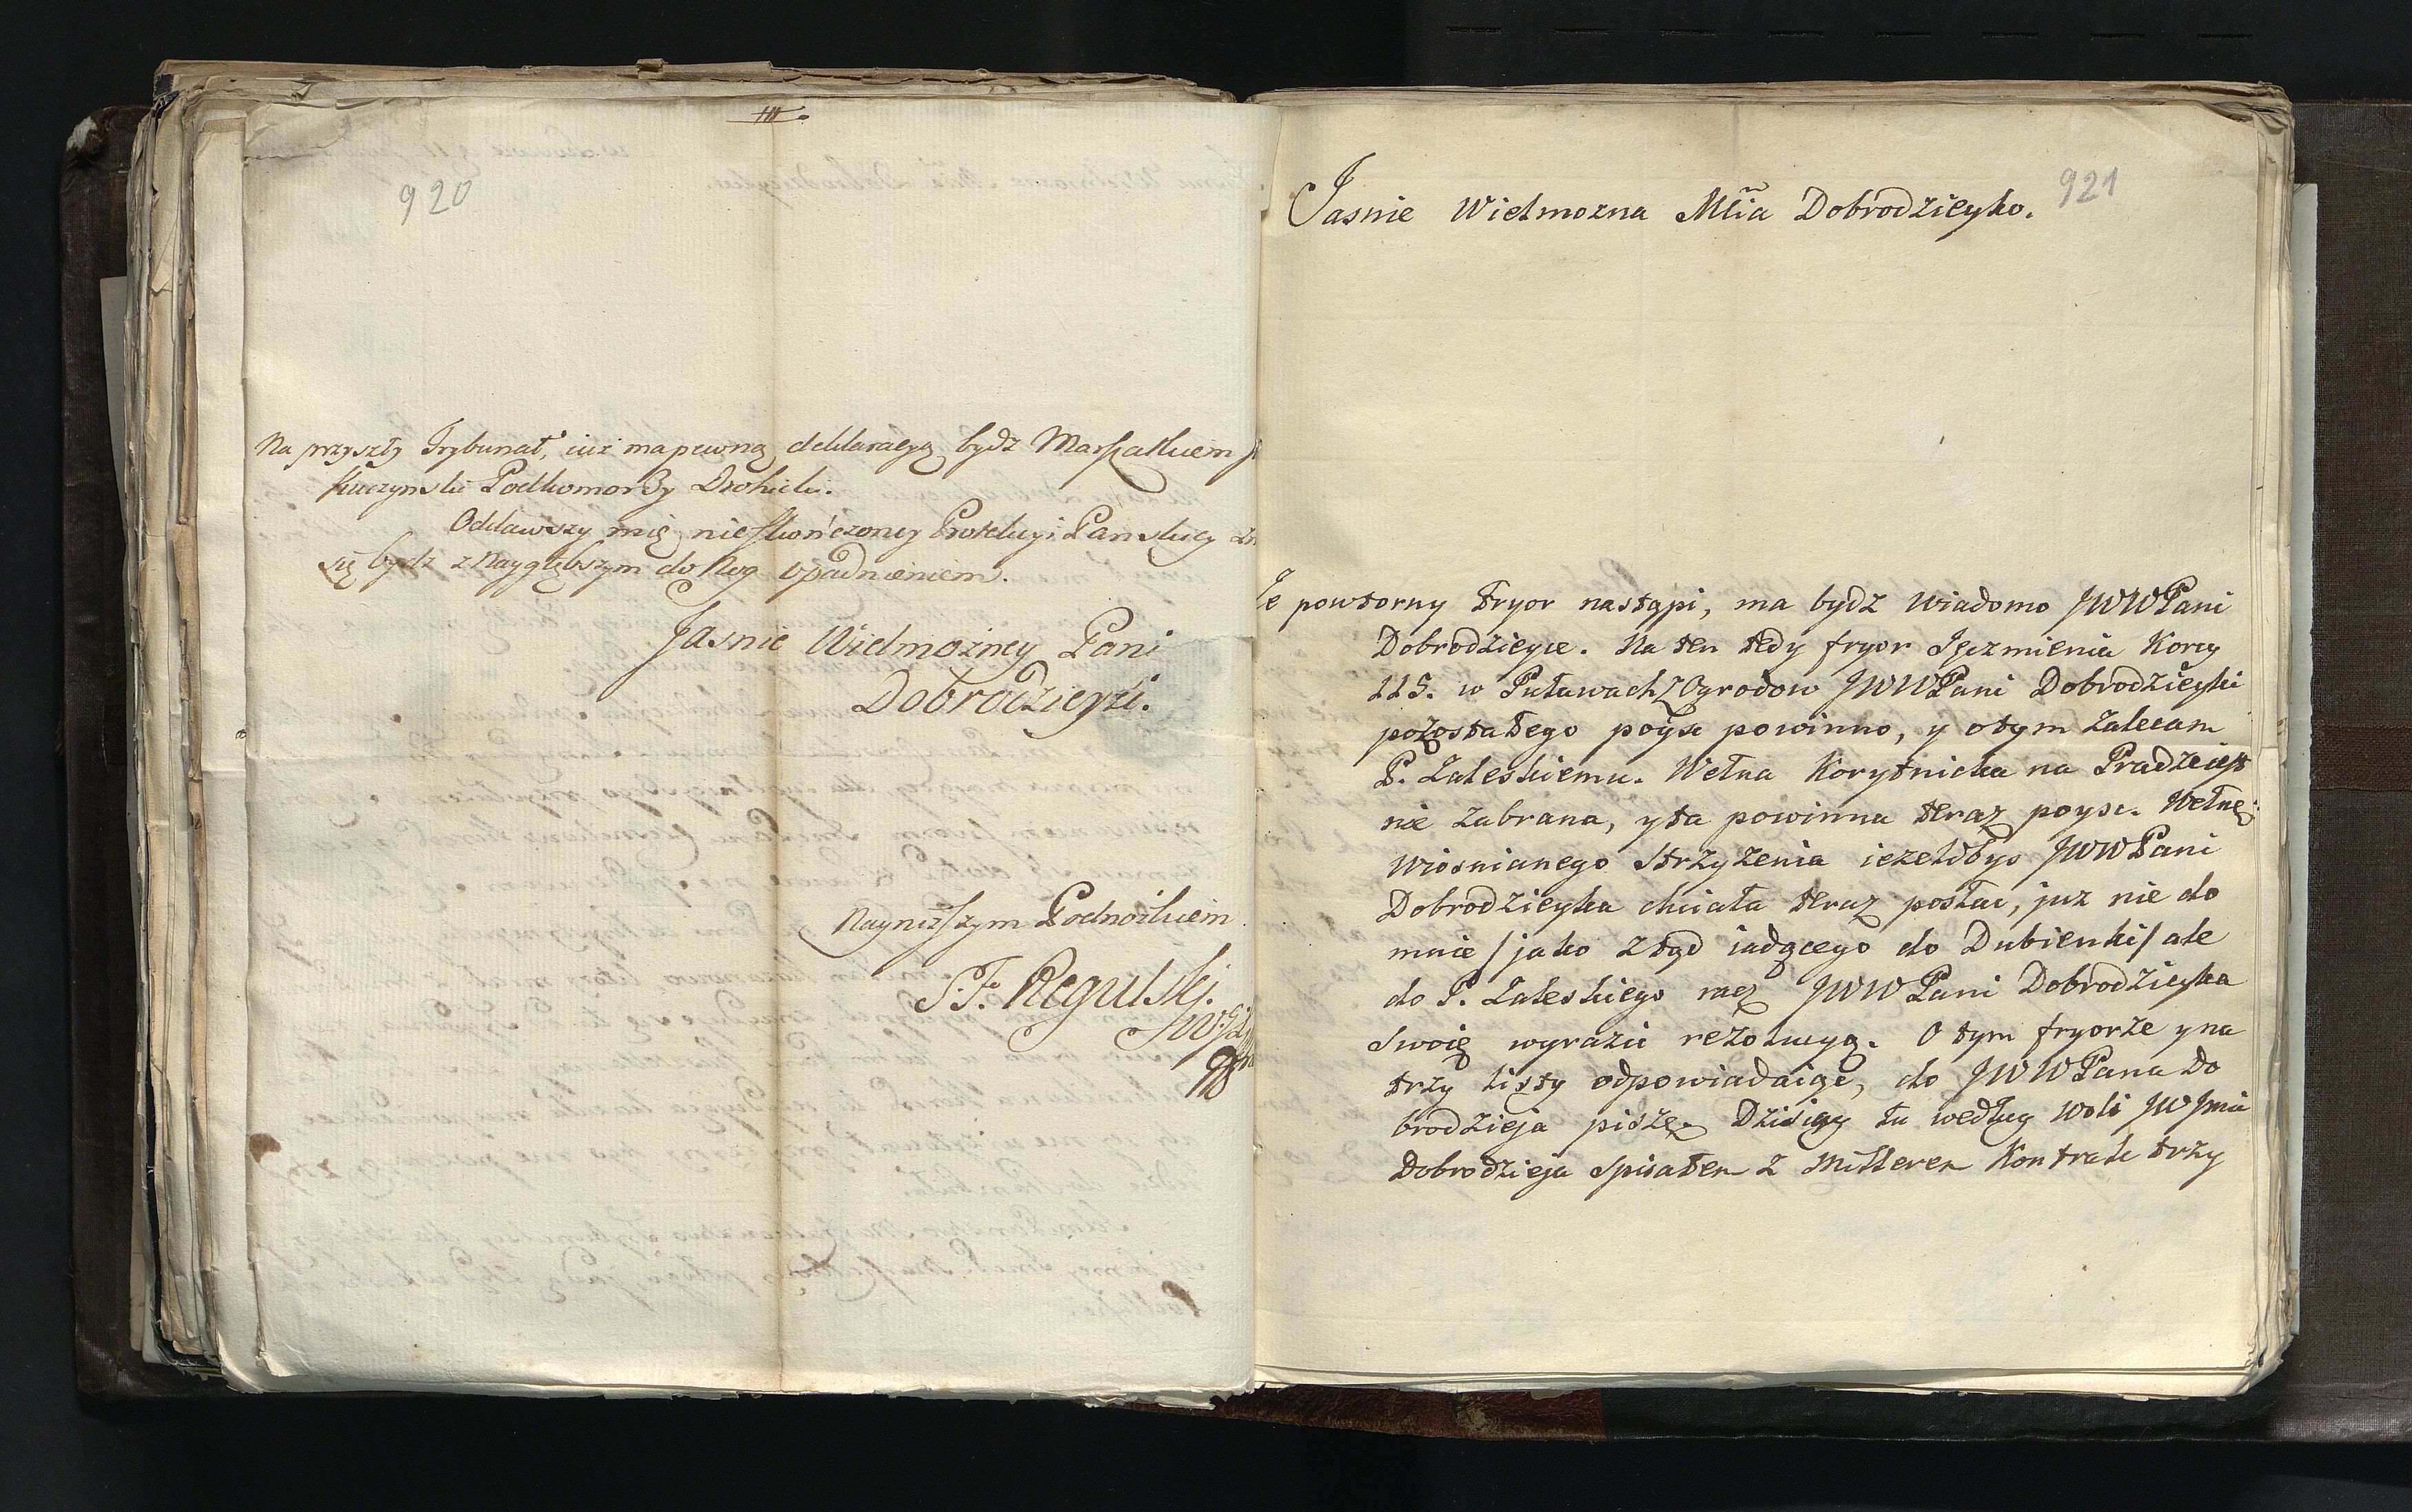 920
Na przyszły Trybunał, iuż ma pewną deklaracyą bydź Marszałkiem
Kuczynski Podkomorzy Drohicki.
Oddawszy mię nieskończoney Protekcyi Pańskiey
się bydź z Naygłębszym do Nog upadnieniem.
Jasnie Wielmożney Pani
Dobrodzieyki.
Nayniższym Podnożkiem
S. F. Regulski.
921
Jasnie Wielmozna Mśia Dobrodzieyko.
Ze powtorny fryor nastąpi, ma bydz wiadomo JWWPani
Dobrodzieyce. Na ten tedy fryor Jęczmienia Korcy
115. w Puławach z Ogrodow JWWPani Dobrodzieyki
pozostałego poysc powinno, y o tym zalecam
P. Zaleskiemu. Wełna Korytnicka na Pradze iest
nie zabrana, y ta powinna teraz poysc. Wełnę
Wiosnianego strzyzenia iezeliby JWWPani
Dobrodzieyka chciała teraz posłac, juz nie do
mnie / jako ztąd iadącego do Dubienki / ale
do P. Zaleskiego racz JWWPani Dobrodzieyka
swoię wyrazic rezolucyą. O tym fryorze y na
trzy listy odpowiadaiąc, do JWWPana Do
brodzieja piszę. Dzisiay tu według woli JWJmci
Dobrodzieja spisałem z Millerem Kontrakt trzy